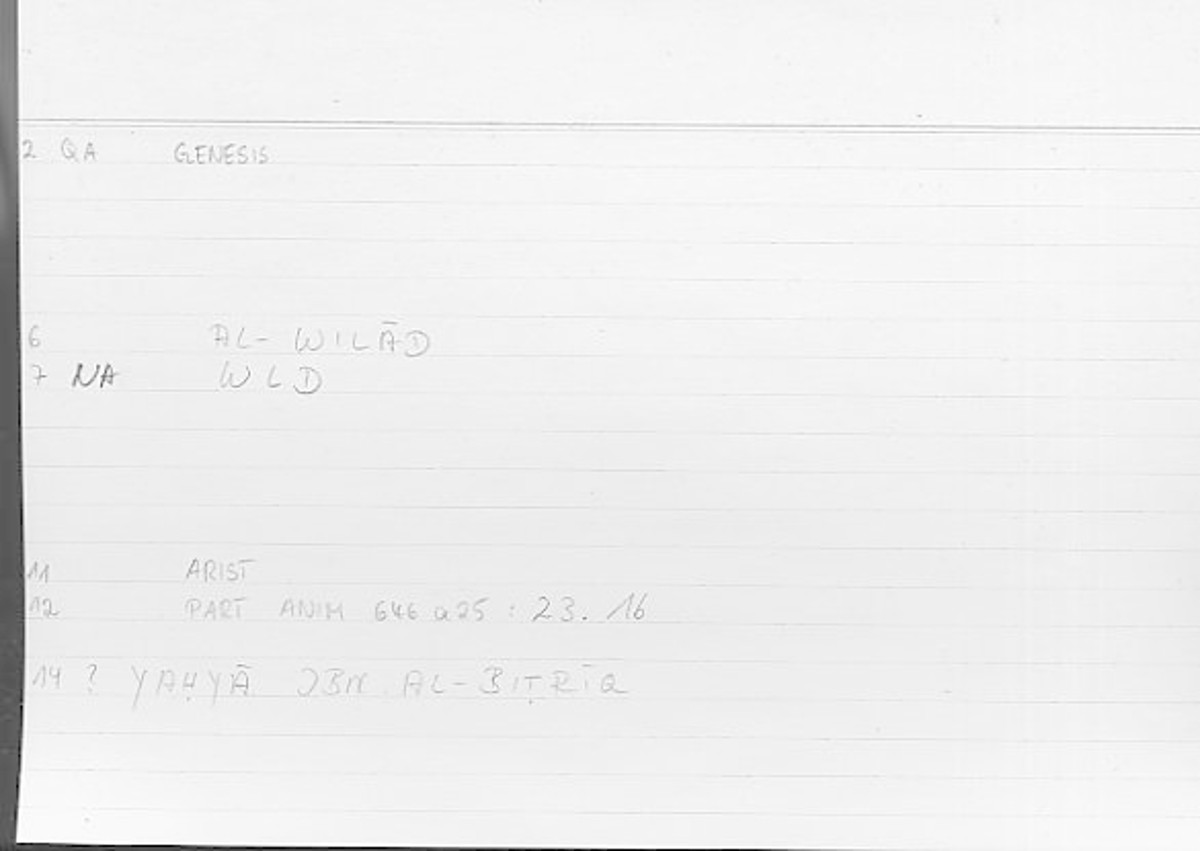 2 QA GENESIS
6 AL-WILĀD
7 NA WLD
11 ARIST
12 PART ANIM 646 a25 : 23. 16
14 ? YAḤYĀ IBN AL-BIṬRĪQ